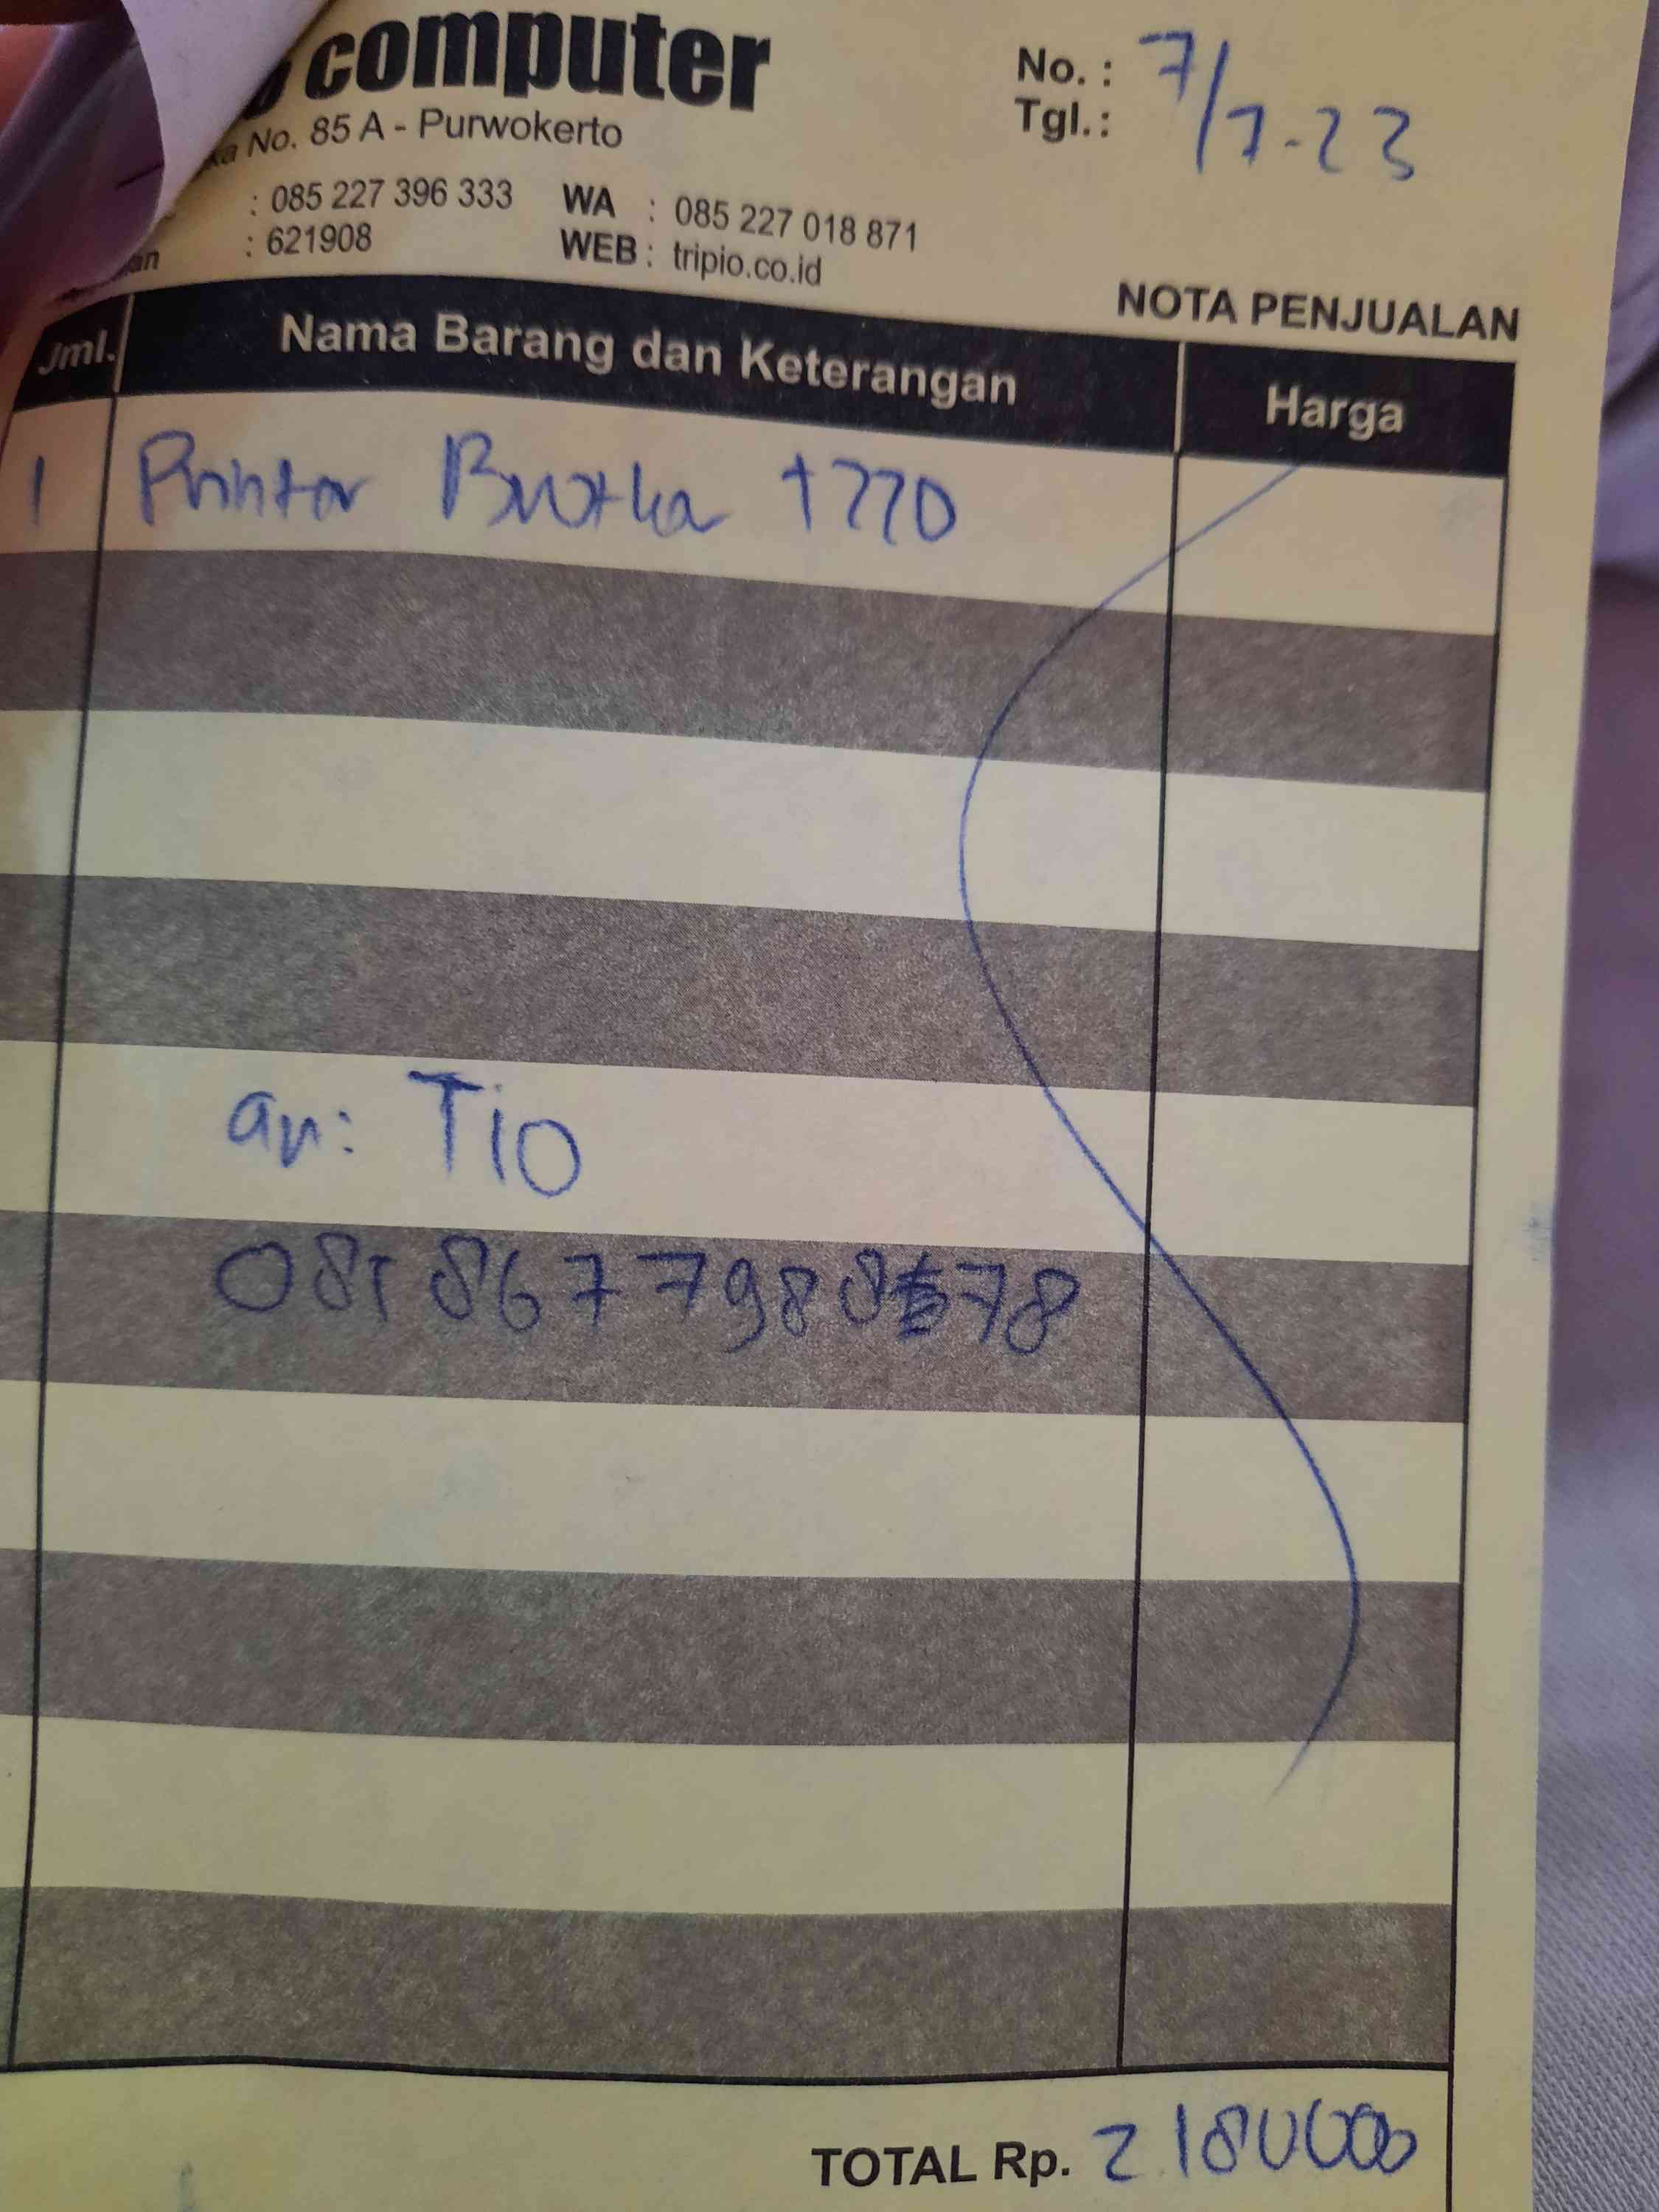 computer
No. : 7/7-23
Tgl. :
No. 85 A - Purwokerto
: 085 227 396 333 WA : 085 227 018 871
: 621908 WEB : tripio.co.id
NOTA PENJUALAN
Jml. Nama Barang dan Keterangan Harga
1 Printer Brother t220
an: Tio
TOTAL Rp. 2.180000